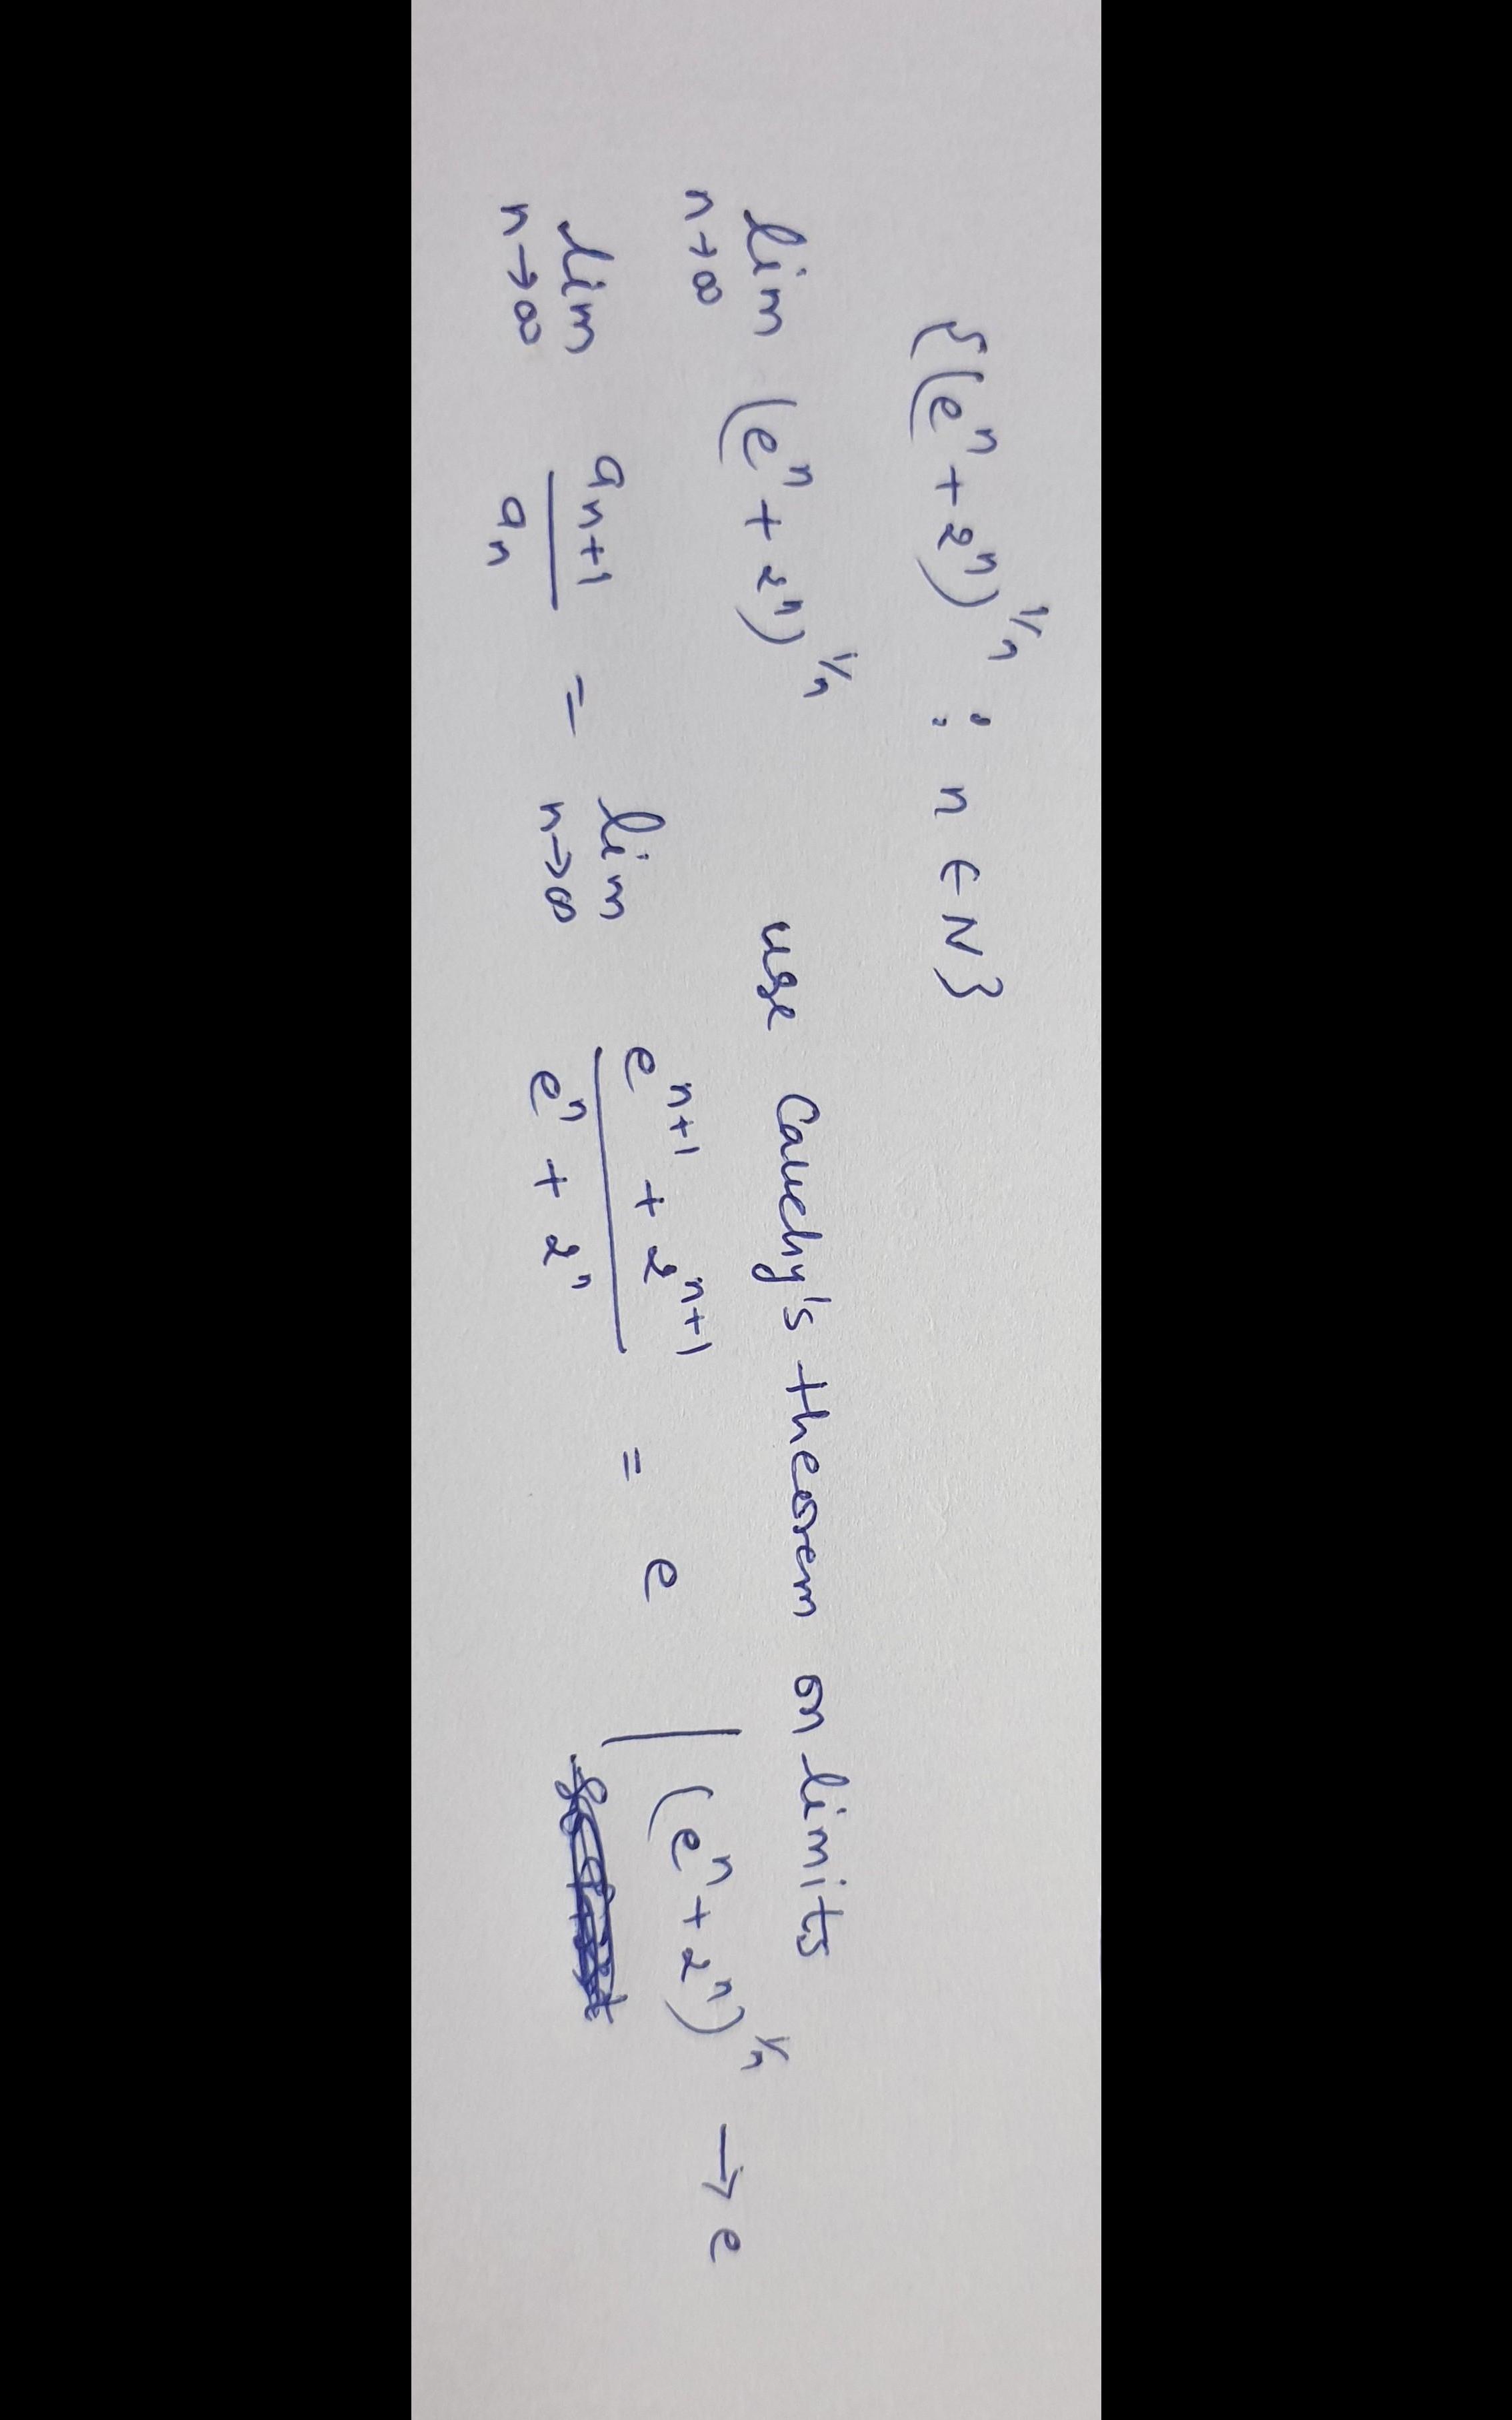 {(eⁿ + 2ⁿ)^1/n : n ∈ N}
lim n→∞ (eⁿ + 2ⁿ)^1/n use Cauchy's theorem on limits
lim n→∞ aₙ₊₁/aₙ = lim n→∞ (eⁿ⁺¹ + 2ⁿ⁺¹)/(eⁿ + 2ⁿ) = e | (eⁿ + 2ⁿ)^1/n → e